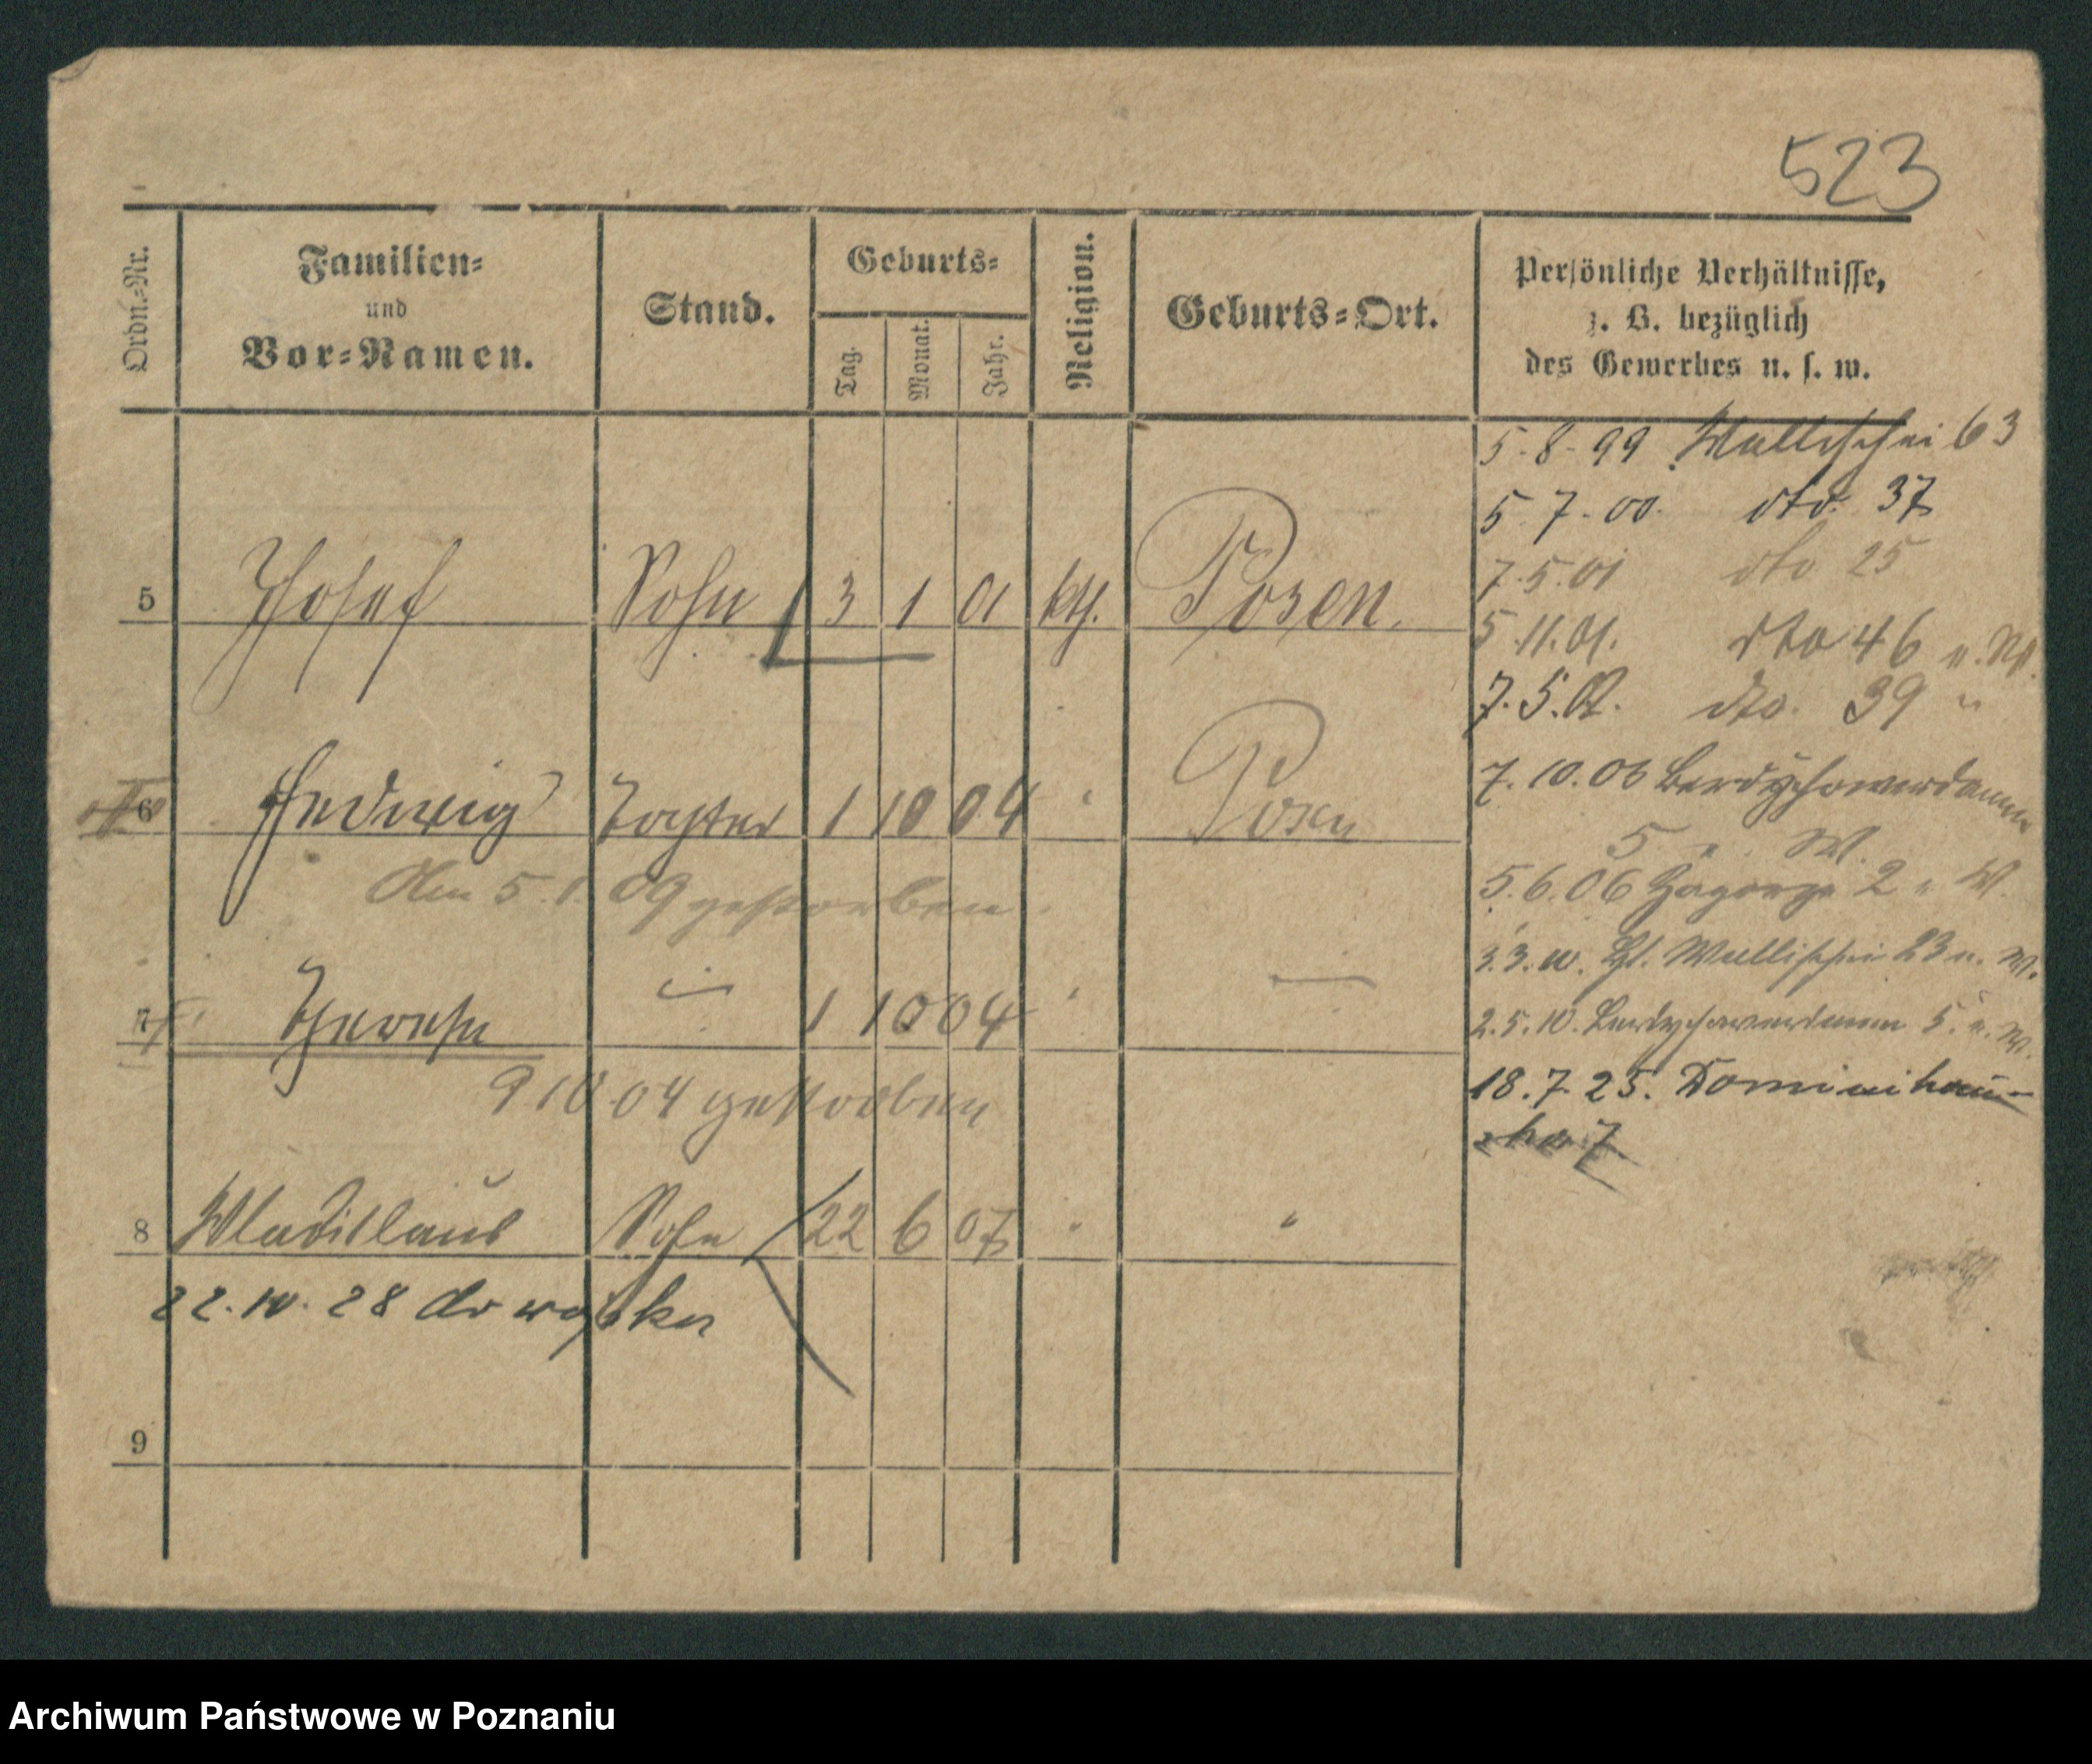 523
Ordn.-Nr.
Familien-
und
Vor-Namen.
Stand.
Geburts-
Tag.
Monat.
Jahr.
Religion.
Geburts-Ort.
Persönliche Verhältnisse,
z. B. bezüglich
des Gewerbes u. s. w.
5 Josef Sohn 3 1 01 kth. Posen.
6 Hedwig Tochter 1 10 04 " Posen
5. 1. 09 gestorben
7 1 10 04 "
9 10 04 gestorben
8 Wladislaus Sohn 22 6 07 " "
22. 10. 28 do
9
5.8.99 Wallischei 63
5.7.00. dto. 37
7.5.01 dto 25
5.11.01. dto 46
7.5.02. dto. 39 "
7.10.03 Berdychowerdamm
5 W.
5.6.06 Zagorze 2 W.
3.3.10. Wallischei 23 u. W.
2.5.10. Berdychowerdamm 5. u. W.
18.7.25. Dominikań-
ska 7
Archiwum Państwowe w Poznaniu